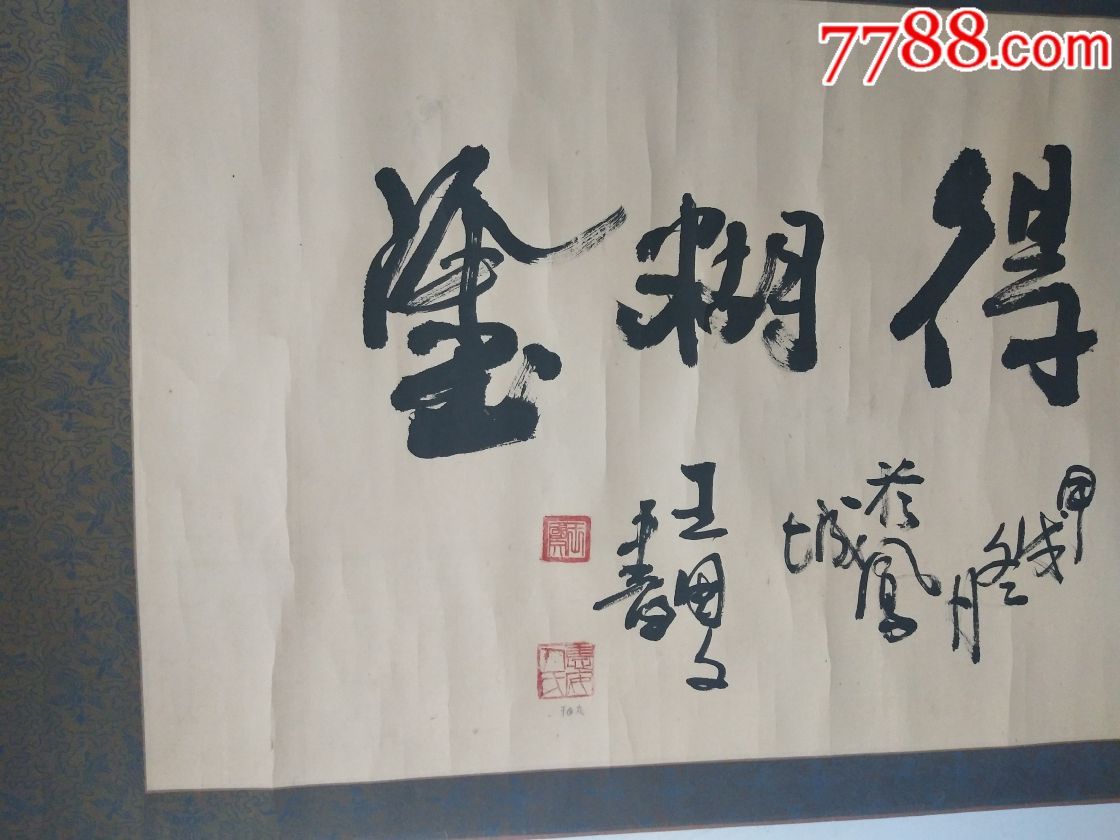 7788.com
得糊塗
甲戌冬月
於鳳城
王國文
書